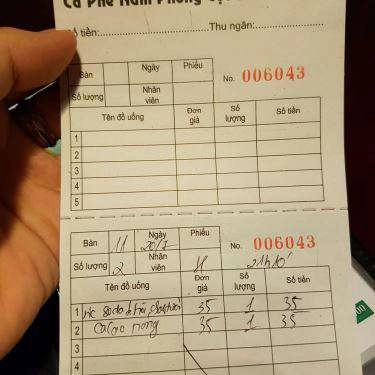 Cà Phê Nấm Phong
Số tiền:............................Thu ngân:................
Bàn Ngày Phiếu
Số lượng Nhân viên
No. 006043
Tên đồ uống Đơn giá Số lượng Số tiền
1
2
3
4
5
Bàn 11 Ngày 20/1 Phiếu
Số lượng 2 Nhân viên
No. 006043
21h10'
Tên đồ uống Đơn giá Số lượng Số tiền
1 soda 35 1 35
2 Cacao nóng 35 1 35
3
4